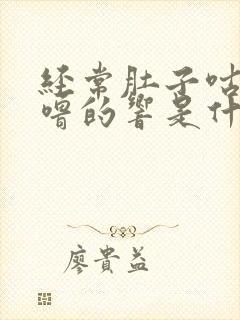 經常肚子咕
嚕的響是什
廖貴益